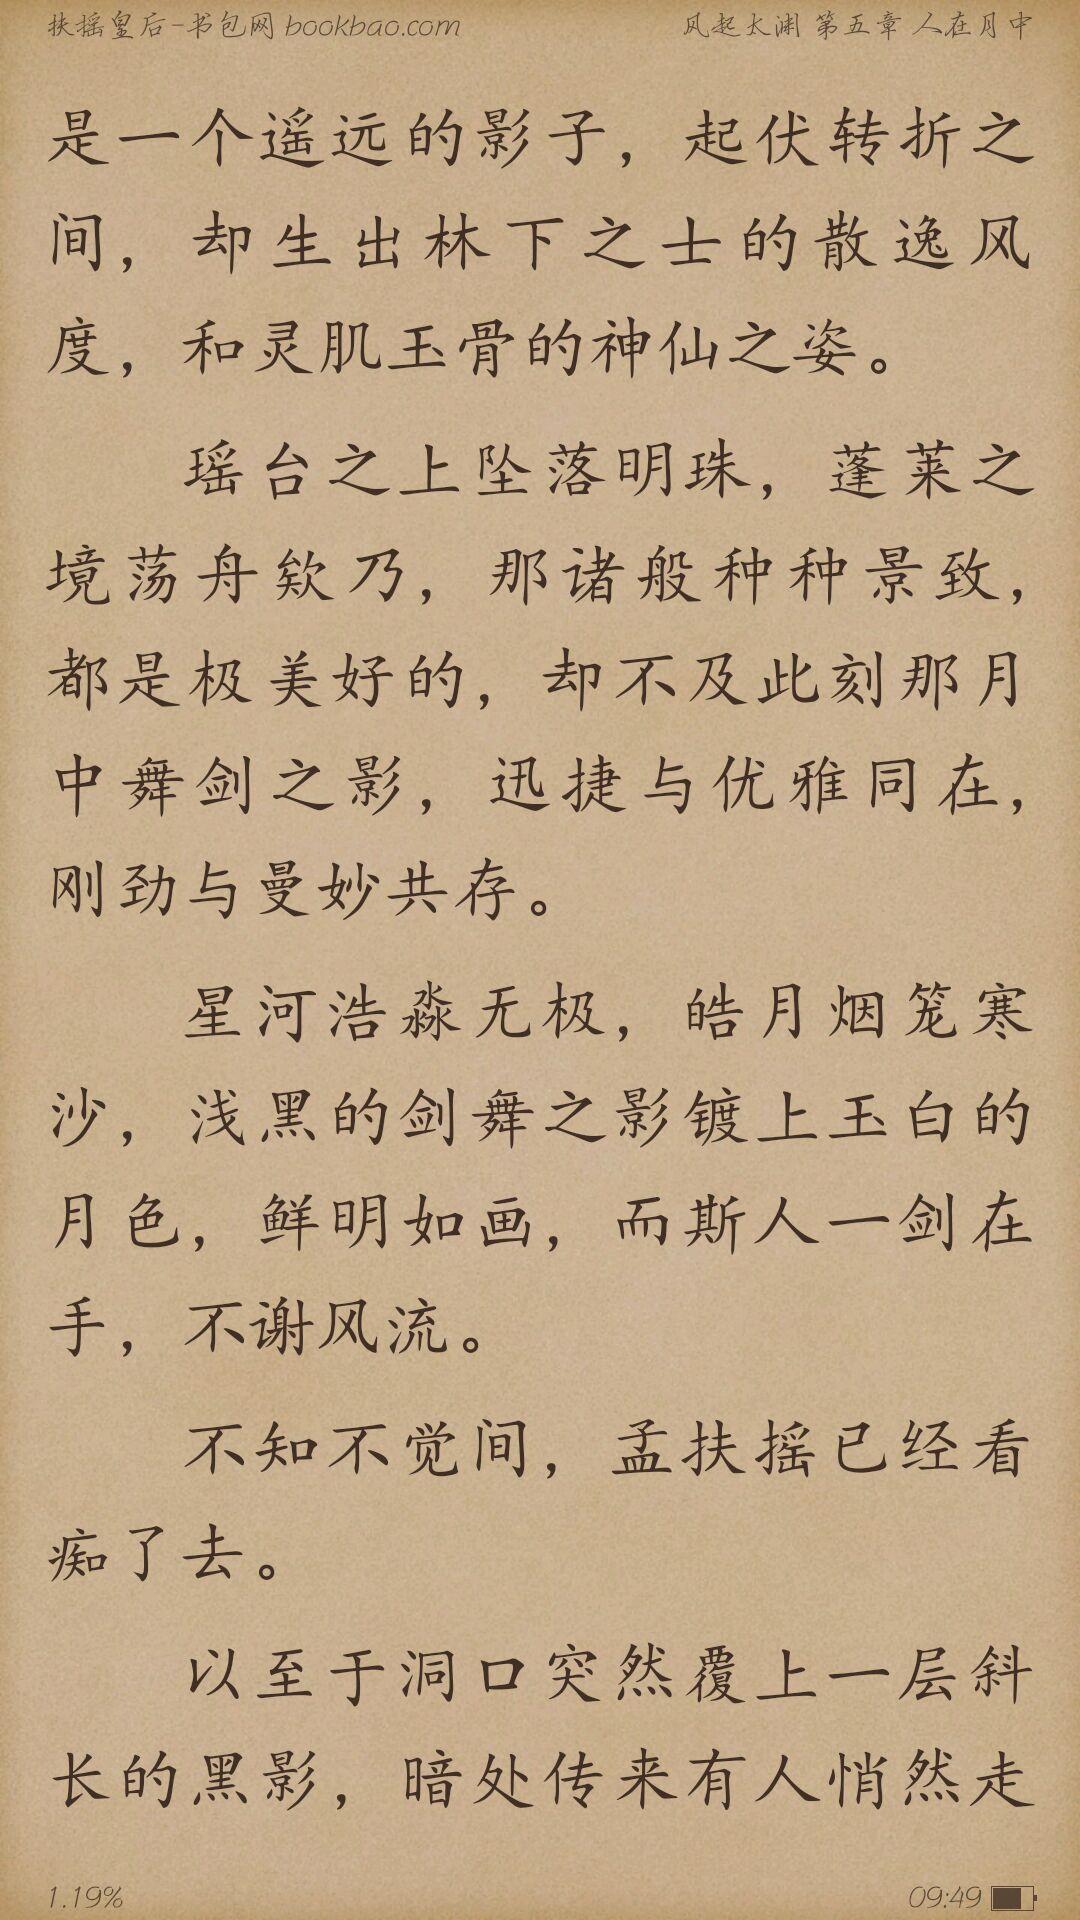 扶摇皇后-书包网 bookbao.com 风起太渊 第五章 人在月中
是一个遥远的影子，起伏转折之
间，却生出林下之士的散逸风
度，和灵肌玉骨的神仙之姿。
瑶台之上坠落明珠，蓬莱之
境荡舟欸乃，那诸般种种景致，
都是极美好的，却不及此刻那月
中舞剑之影，迅捷与优雅同在，
刚劲与曼妙共存。
星河浩淼无极，皓月烟笼寒
沙，浅黑的剑舞之影镀上玉白的
月色，鲜明如画，而斯人一剑在
手，不谢风流。
不知不觉间，孟扶摇已经看
痴了去。
以至于洞口突然覆上一层斜
长的黑影，暗处传来有人悄然走
1.19% 09:49